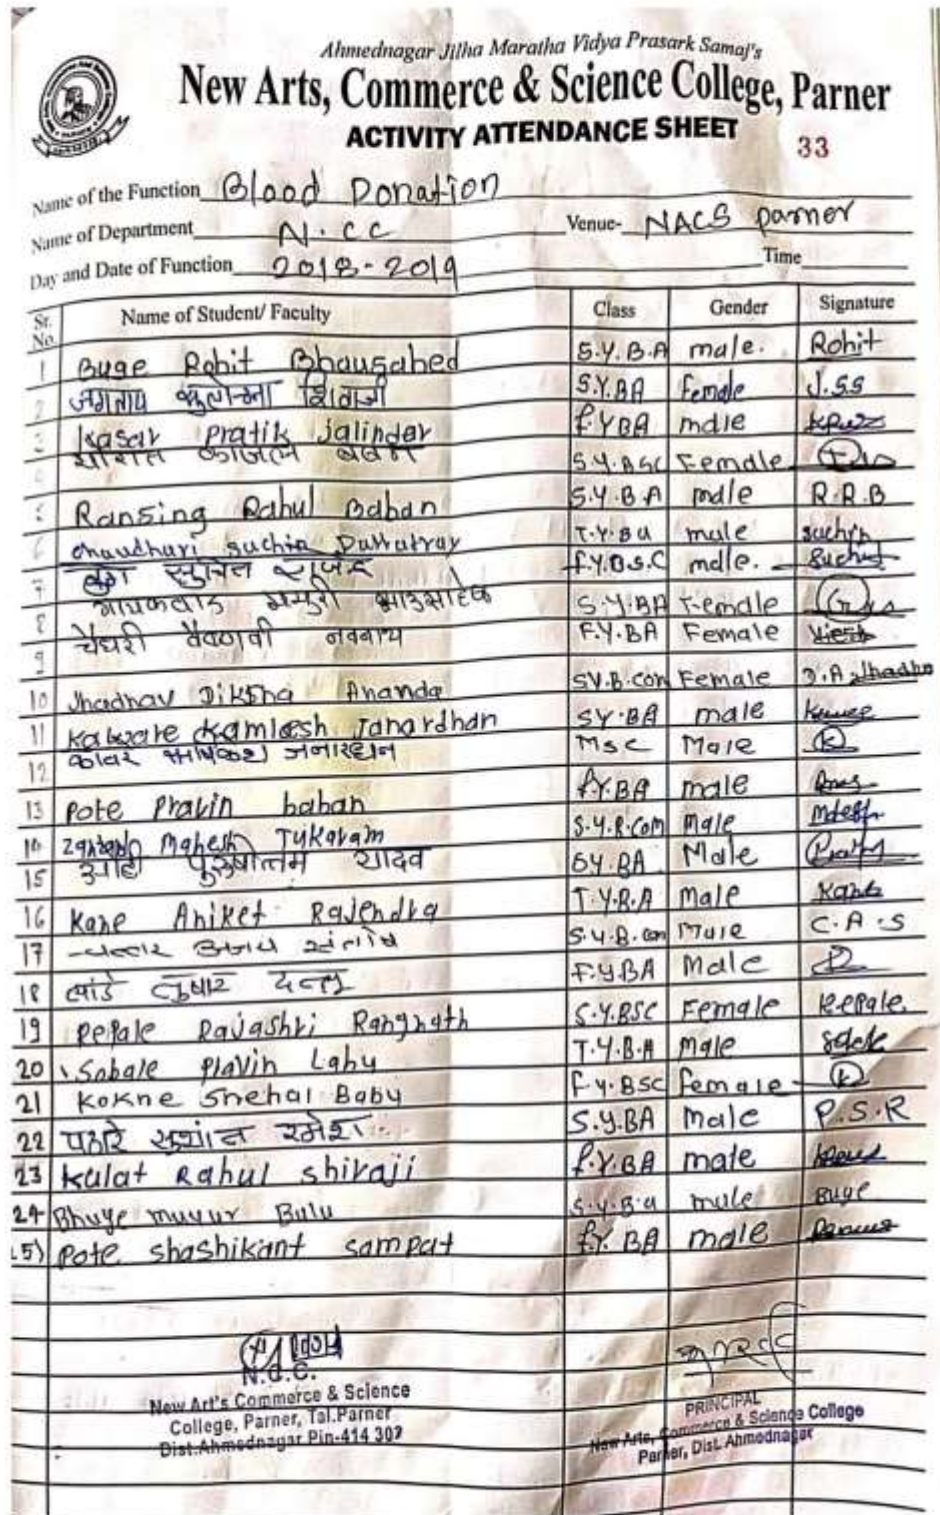 Ahmednagar Jilha Maratha Vidya Prasark Samaj's
New Arts, Commerce & Science College, Parner
ACTIVITY ATTENDANCE SHEET
33
Name of the Function Blood Donation
Name of Department N.CC Venue- NACS parner
Day and Date of Function 2018-2019 Time
Sr. No. Name of Student/ Faculty Class Gender Signature
1 Buge Rohit Bhausahed S.Y.B.A male. Rohit
2 जगताप शिवाजी S.Y.BA female J.S.S
3 Kasar Pratik jalinder f.YBA male
काजल बबन S.Y.BSC Female
5 Ransing Rahul Baban S.Y.B.A male R.R.B
6 chaudhari suchin Dattatray T.Y.Ba male suchin
7 f.Y.B.S.C male.
8 गायकवाड मयुरी भाउसाहेब S.Y.BA Female
9 चौधरी वैष्णवी नवनाथ F.Y.BA Female
10 Jhadhav Diksha Ananda SY.B.com Female D.A Jhadhv
11 Kaware Kamlesh Janardhan SY.BA male
12 कावरे जनारधन Msc Male
13 Pote Pravin baban f.Y.BA male
14 Mahesh Tukaram S.Y.B.Com Male
15 पुरुषोत्तम यादव S.Y.BA Male
16 Kane Aniket Rajendra T.Y.B.A Male Kane
17 संतोष S.Y.B.com Male C.A.S
18 लांडे तुषार दत्तू F.Y.BA Male
19 Repale Rajashri Rangnath S.Y.BSC Female Repale
20 Sabale Pravin Labu T.Y.B.A Male
21 Kokne Snehal Babu F.Y.BSC female
22 पठारे सुशांत रमेश S.Y.BA Male P.S.R
23 Kulat Rahul shivaji f.Y.BA male
24 Bhuge muyur Balu S.Y.B.a mule Buge
25) Pote shashikant sampat f.Y.BA male
N.C.C.
New Art's Commerce & Science
College, Parner, Tal.Parner
Dist.Ahmednagar Pin-414 302
PRINCIPAL
New Arts, Commerce & Science College
Parner, Dist. Ahmednagar